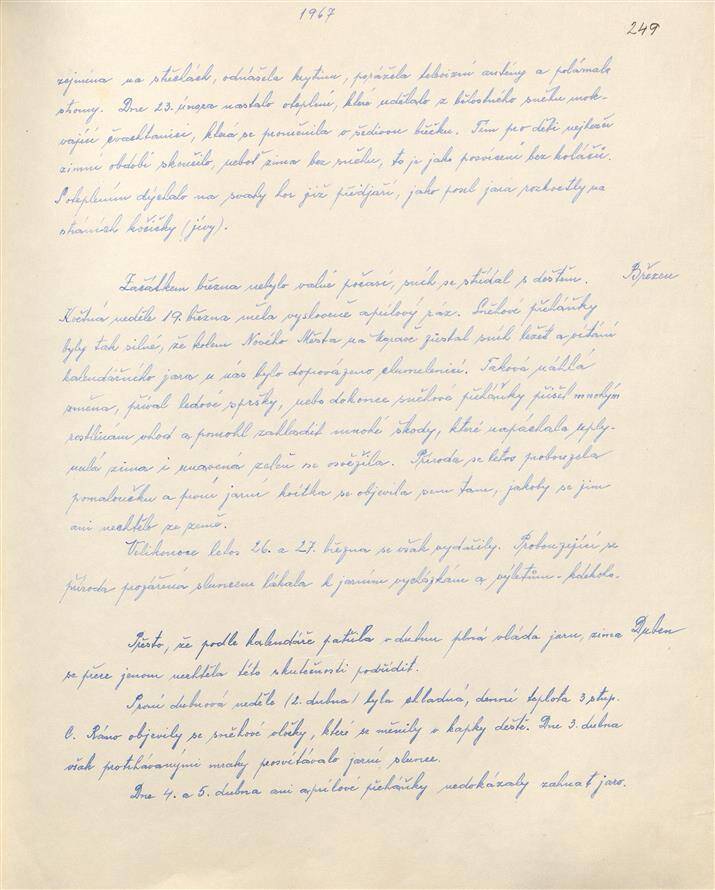 1967
249
zejména na střechách, odnášela krytinu, porážela televizní antény a polámala
stromy. Dne 23. února nastalo oteplení, které udělalo z bělostného sněhu mok-
vající čvachtanici, která se proměnila v šedivou břečku. Tím pro děti nejhezčí
zimní období skončilo, neboť zima bez sněhu, to je jako posvícení bez koláčů.
S oteplením dýchalo na svahy hor již předjaří, jako posel jara rozkvetly na
stráních kočičky (jívy).
Začátkem března nebylo valné počasí, sníh se střídal s deštěm. Březen
Květná neděle 19. března měla vysloveně aprílový ráz. Sněhové přeháňky
byly tak silné, že kolem Nového Města na Moravě zůstal sníh ležet a vítání
kalendářního jara u nás bylo doprovázeno chumelenicí. Taková náhlá
změna, příval ledové spršky, nebo dokonce sněhová přeháňky přišel mnohým
rostlinám vhod a pomohl zahladit mnohé škody, které napáchala uply-
nulá zima i unavená zeleň se osvěžila. Příroda se letos probouzela
pomaloučku a první jarní kvítka se objevila sem tam, jakoby se jim
ani nechtělo ze země.
Velikonoce letos 26. a 27. března se však vydařily. Probouzející se
příroda prozářená sluncem lákala k jarním vycházkám a výletům - kdekoho.
Přesto, že podle kalendáře patřila v dubnu plná vláda jaru, zima Duben
se přece jenom nechtěla této skutečnosti podřídit.
První dubnová neděle (2. dubna) byla chladná, denní teplota 3 stup.
C. Ráno objevily se sněhové vločky, které se měnily v kapky deště. Dne 3. dubna
však protrhávanými mraky prosvítávalo jarní slunce.
Dne 4. a 5. dubna ani aprílové přeháňky nedokázaly zahnat jaro.